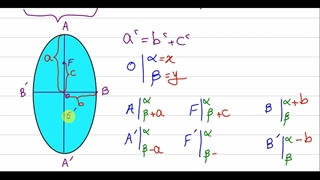 A
a
F
c
B′
o
B
b
5′
A′
a² = b² + c²
O | α = x
β = y
A | α
β + a
F | α
β + c
B | α + b
β
A′ | α
β - a
F′ | α
β -
B′ | α - b
β